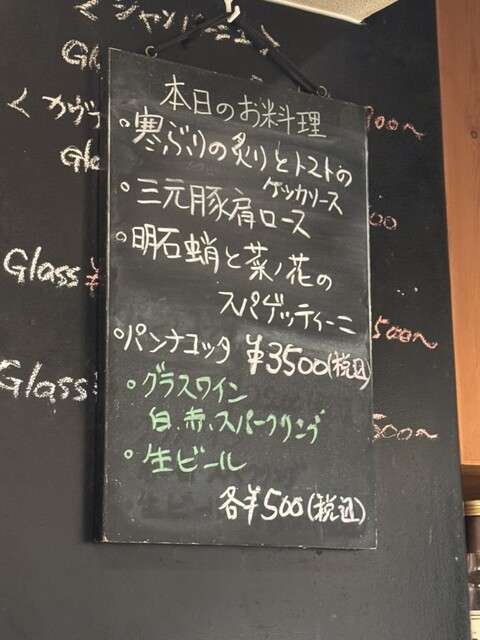 <シャンパーニュ
Gla
本日のお料理
<カヴァ
900〜
。寒ぶりの炙りとトマトの
ケッカソース
Gla
。三元豚肩ロース
00
。明石蛸と菜ノ花の
Glass ¥
スパゲッティーニ
500〜
。パンナコッタ ¥3500(税込)
Glass
。グラスワイン
白、赤、スパークリング
500〜
。生ビール
各¥500(税込)